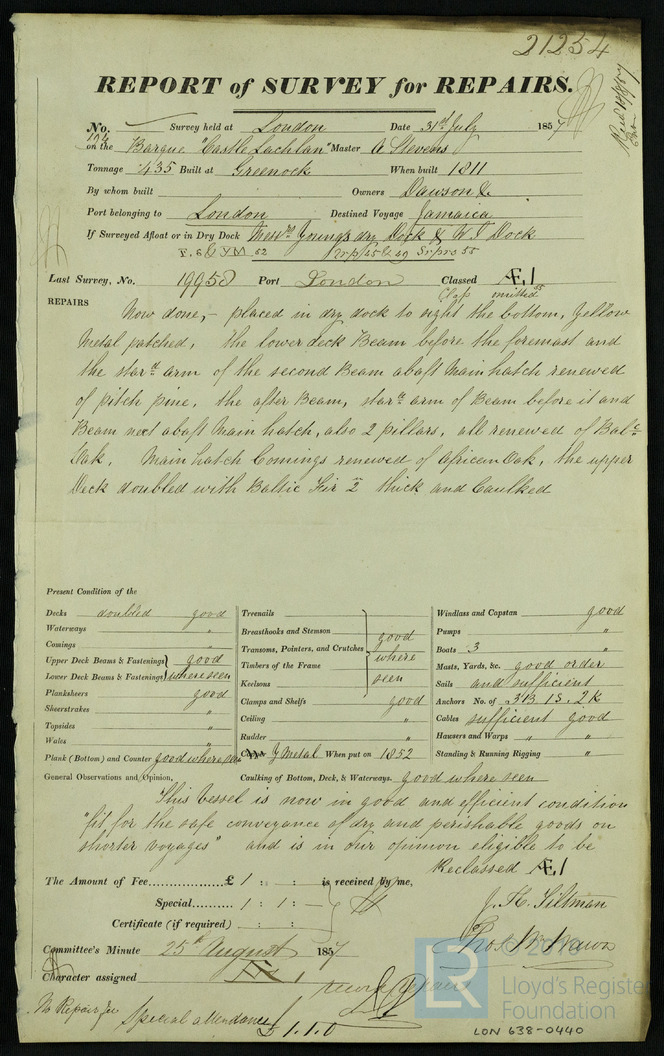 21254
REPORT of SURVEY for REPAIRS.
No. Survey held at London Date 31st July 1857
194 on the Barque "Castle Lachlan" Master A Stevens
Tonnage 435 Built at Greenock When built 1811
By whom built Owners Dawson &
Port belonging to London Destined Voyage Jamaica
If Surveyed Afloat or in Dry Dock Messrs Young's dry Dock & W I Dock
Last Survey, No. 19958 Port London Classed Æ1
omitted 55
REPAIRS Now done,- placed in dry dock to sight the bottom, Yellow
Metal patched, the lower deck Beam before the foremast and
the starbd arm of the second Beam abaft Main hatch renewed
of pitch pine, the after Beam, starbd arm of Beam before it and
Beam next abaft Main hatch, also 2 pillars, all renewed of Balc
Oak, Main hatch Comings renewed of African Oak, the upper
Deck doubled with Baltic Fir 2 in thick and Caulked
Present Condition of the
Decks doubled good
Waterways "
Comings "
Upper Deck Beams & Fastenings good
Lower Deck Beams & Fastenings where seen
Planksheers good
Sheerstrakes "
Topsides "
Wales "
Plank (Bottom) and Counter good where seen
Treenails
Breasthooks and Stemson good
Transoms, Pointers, and Crutches where
Timbers of the Frame
Keelsons seen
Clamps and Shelfs good
Ceiling "
Rudder "
Y Metal When put on 1852
Windlass and Capstan good
Pumps "
Boats 3 "
Masts, Yards, &c. good order
Sails and sufficient
Anchors No. of 3B 1S. 2K
Cables sufficient good
Hawsers and Warps " "
Standing & Running Rigging "
General Observations and Opinion, Caulking of Bottom, Deck, & Waterways. good where seen
This Vessel is now in good and efficient condition
"fit for the safe conveyance of dry and perishable goods on
shorter voyages" and is in our opinion eligible to be
Reclassed Æ1
The Amount of Fee £ 1 : - : - is received by me,
Special 1 : 1 : -
Certificate (if required) : :
J. H. Tiltman
Committee's Minute 25th August 1857
Character assigned
No Repair fee
Special attendance £1.1.0
© 2019
LR
Lloyd's Register
Foundation
LON 638-0440